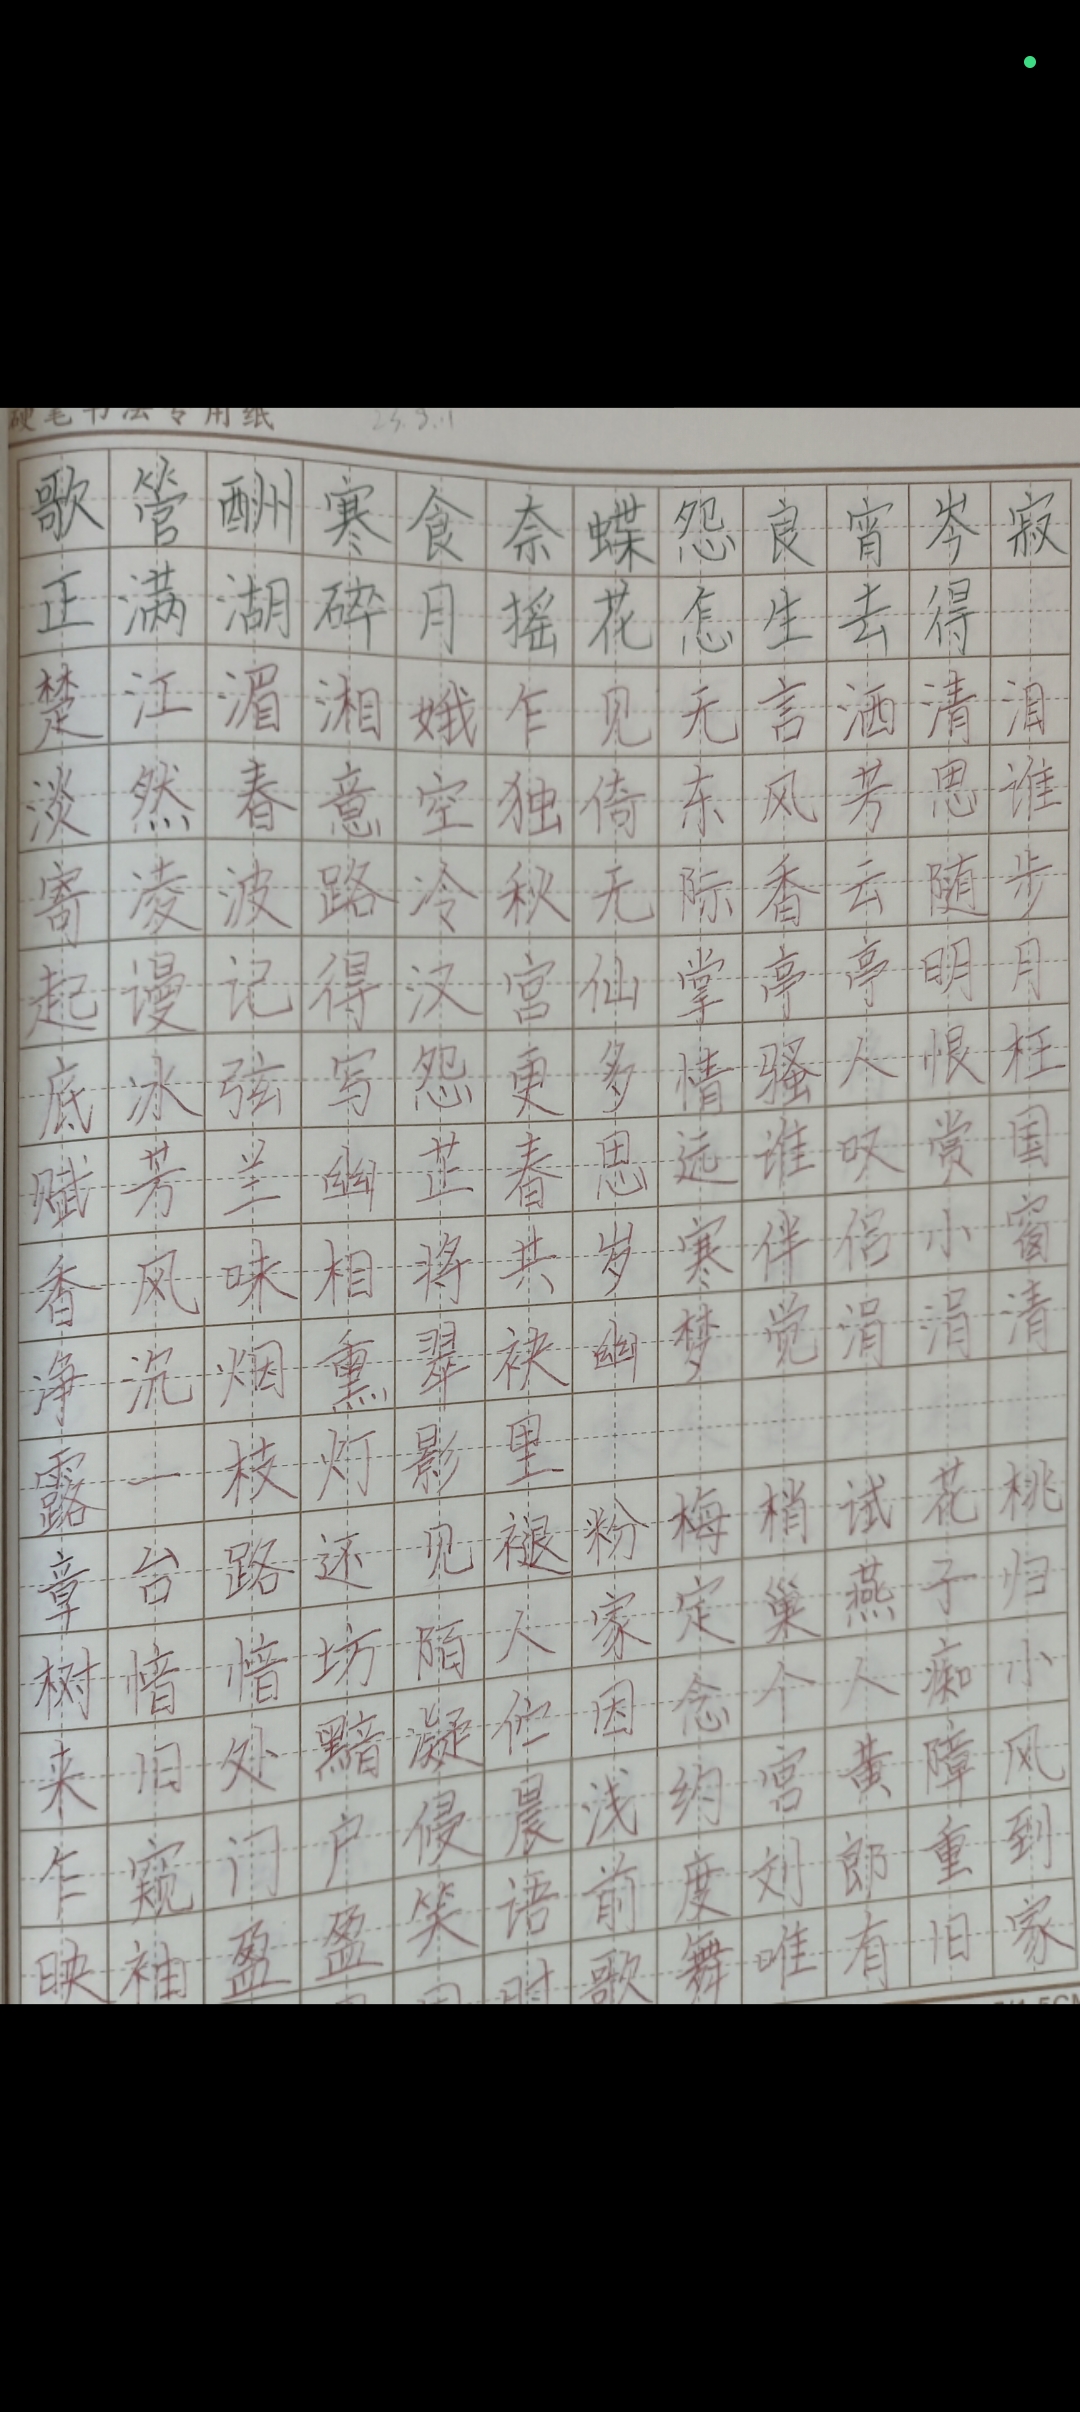 硬笔书法专用纸 23.9.11
歌管酬寒食奈蝶怨良宵岑寂
正满湖碎月摇花怎生去得
楚江湄湘娥乍见无言洒清泪
淡然春意空独倚东风芳思谁
寄凌波路冷秋无际香云随步
起谩记得汉宫仙掌亭亭明月
底冰弦写怨更多情骚人恨枉
赋芳兰幽芷春思远谁叹赏国
香风味相将共岁寒伴侣小窗
净沉烟熏翠袂幽梦觉涓涓清
露一枝灯影里
章台路还见褪粉梅梢试花桃
树愔愔坊陌人家定巢燕子归
来旧处黯凝伫因念个人痴小
乍窥门户侵晨浅约宫黄障风
映袖盈盈笑语前度刘郎重到
时歌舞唯有旧家